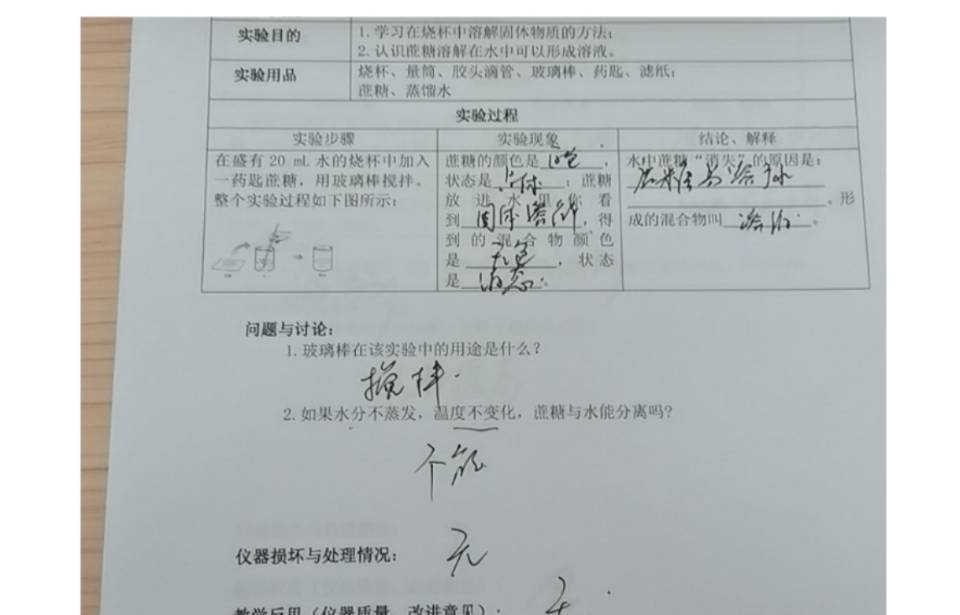 实验目的
1. 学习在烧杯中溶解固体物质的方法;
2. 认识蔗糖溶解在水中可以形成溶液。
实验用品
烧杯、量筒、胶头滴管、玻璃棒、药匙、滤纸;
蔗糖、蒸馏水
实验过程
实验步骤
实验现象
结论、解释
在盛有 20 mL 水的烧杯中加入
一药匙蔗糖，用玻璃棒搅拌。
整个实验过程如下图所示:
蔗糖的颜色是 白色 ，
状态是 固体 ; 蔗糖
放进水里你看
到 固体溶解 ，得
到的混合物颜色
是 无色 ，状态
是 液态 。
水中蔗糖“消失”的原因是:
蔗糖易溶于水
。形
成的混合物叫 溶液 。
问题与讨论:
1. 玻璃棒在该实验中的用途是什么?
搅拌.
2. 如果水分不蒸发，温度不变化，蔗糖与水能分离吗?
不能
仪器损坏与处理情况: 无
教学反思（仪器质量、改进意见）: 无